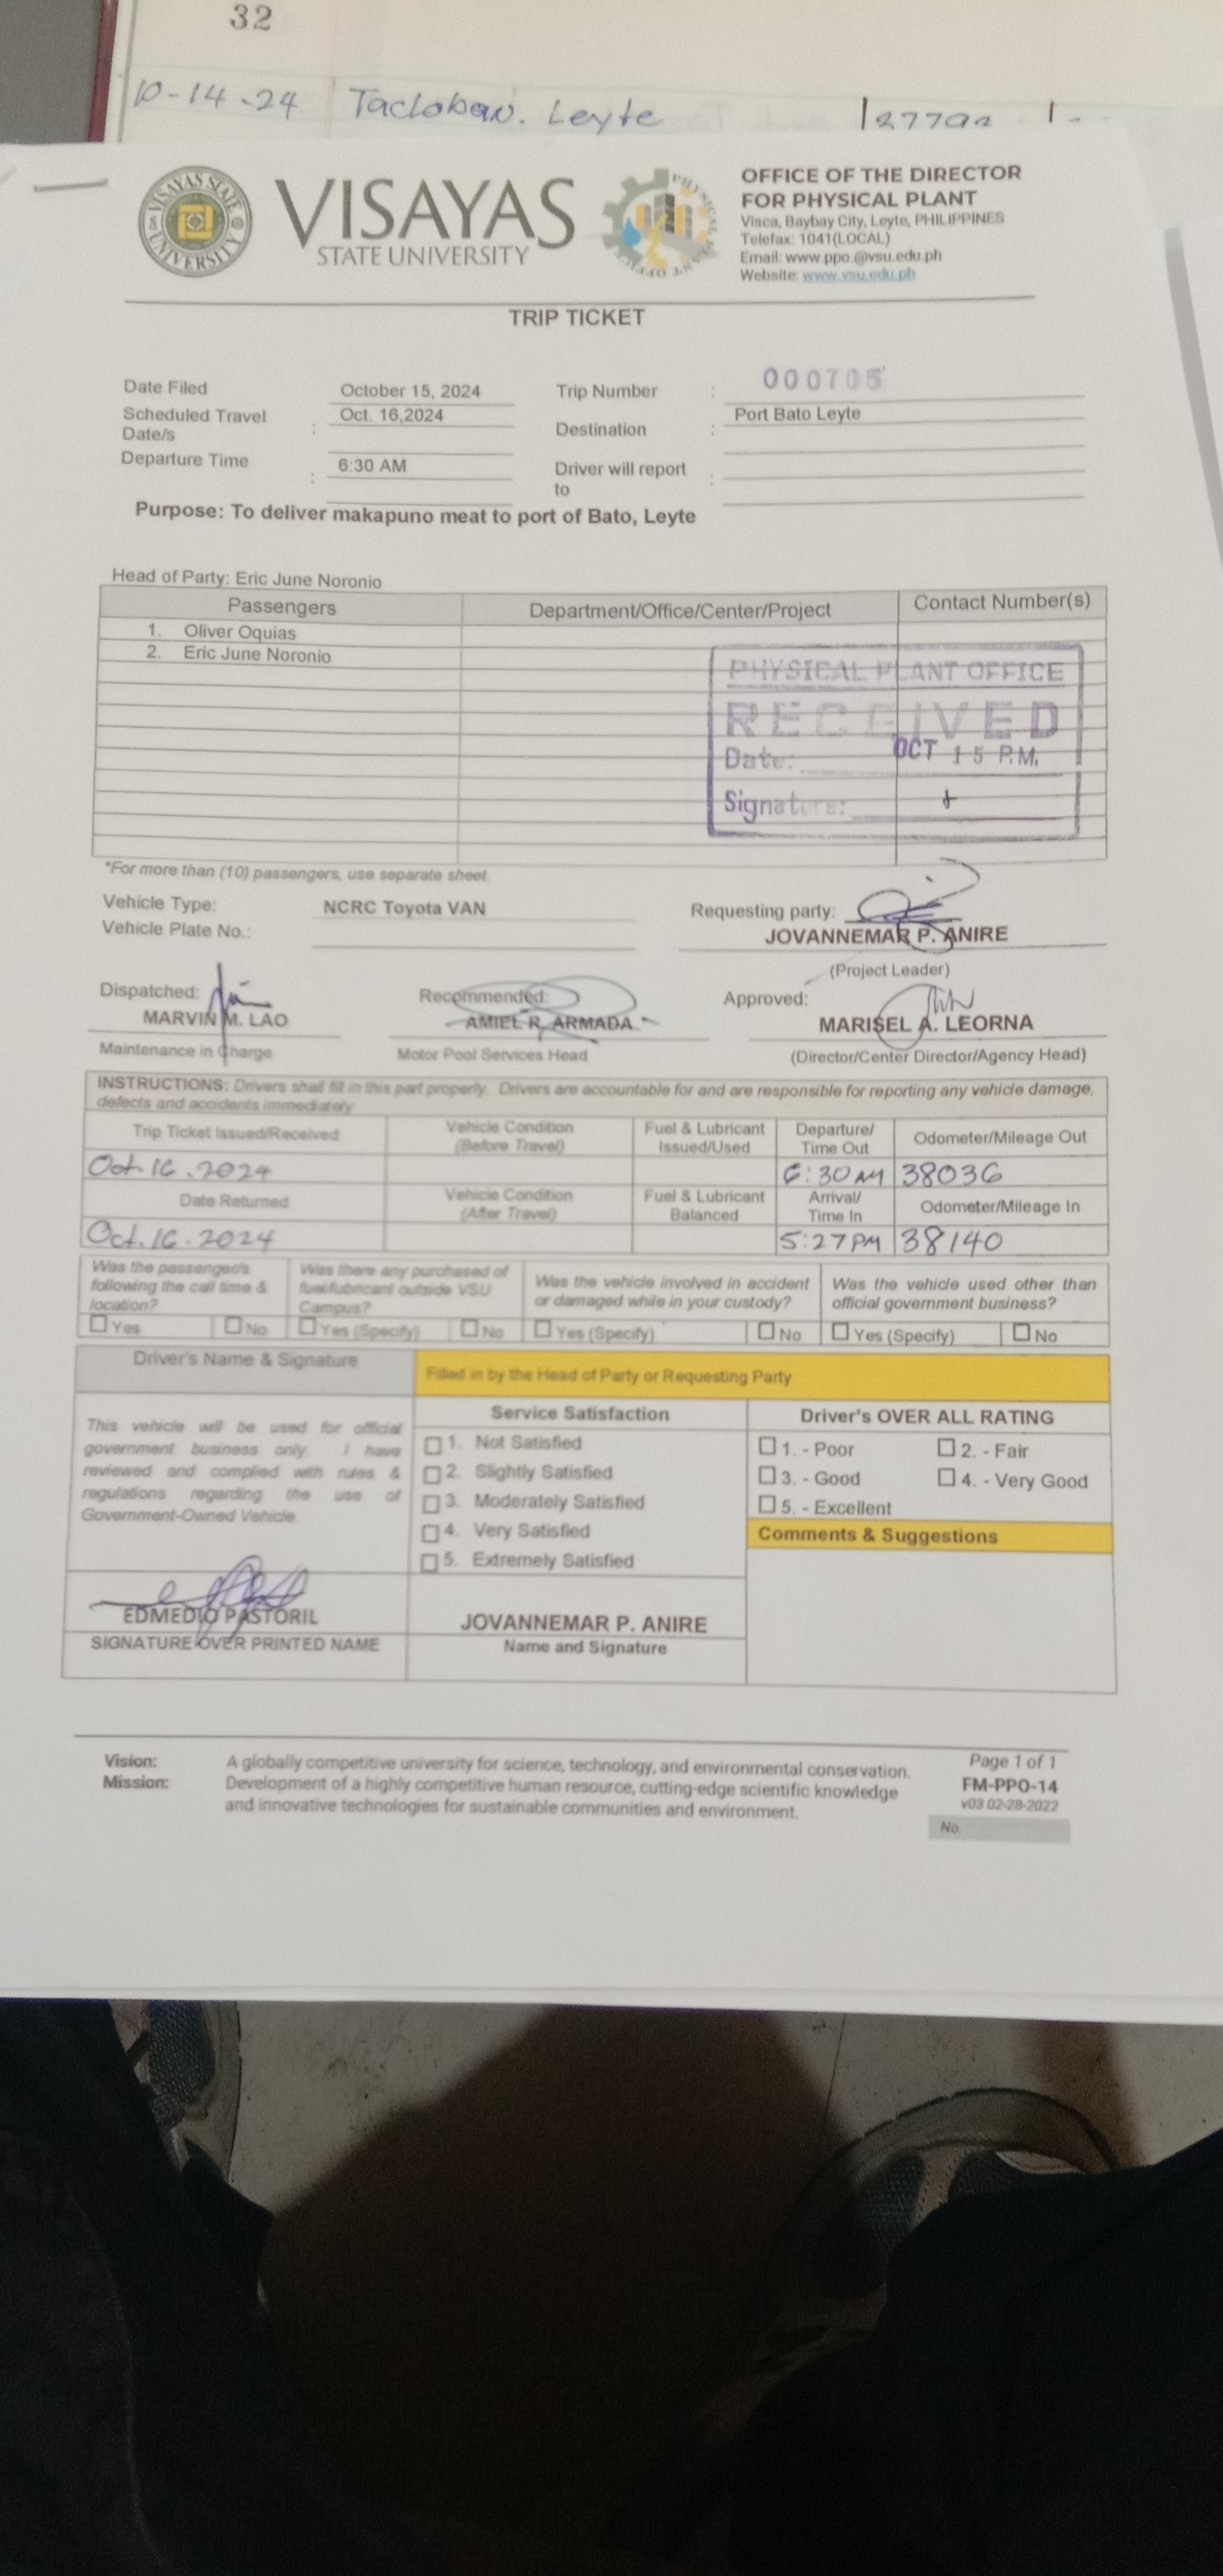 32
10-14-24 Tacloban. Leyte
VISAYAS STATE UNIVERSITY
VISAYAS
STATE UNIVERSITY
OFFICE OF THE DIRECTOR
FOR PHYSICAL PLANT
Visca, Baybay City, Leyte, PHILIPPINES
Telefax: 1041(LOCAL)
Email: www.ppo.@vsu.edu.ph
Website: www.vsu.edu.ph
TRIP TICKET
Date Filed October 15, 2024 Trip Number : 000705
Scheduled Travel Date/s : Oct. 16,2024 Destination : Port Bato Leyte
Departure Time : 6:30 AM Driver will report to :
Purpose: To deliver makapuno meat to port of Bato, Leyte
Head of Party: Eric June Noronio
Passengers Department/Office/Center/Project Contact Number(s)
1. Oliver Oquias
2. Eric June Noronio
PHYSICAL PLANT OFFICE
RECEIVED
Date: OCT 15 P.M.
Signature:
*For more than (10) passengers, use separate sheet.
Vehicle Type: NCRC Toyota VAN Requesting party:
Vehicle Plate No.: JOVANNEMAR P. ANIRE
(Project Leader)
Dispatched: Recommended: Approved:
MARVIN M. LAO AMIEL R. ARMADA MARISEL A. LEORNA
Maintenance in Charge Motor Pool Services Head (Director/Center Director/Agency Head)
INSTRUCTIONS: Drivers shall fill in this part properly. Drivers are accountable for and are responsible for reporting any vehicle damage,
defects and accidents immediately
Trip Ticket Issued/Received Vehicle Condition (Before Travel) Fuel & Lubricant Issued/Used Departure/ Time Out Odometer/Mileage Out
Oct. 16. 2024 6:30 AM 38036
Date Returned Vehicle Condition (After Travel) Fuel & Lubricant Balanced Arrival/ Time In Odometer/Mileage In
Oct. 16. 2024 5:27 PM 38140
Was the passenger/s following the call time & location? Was there any purchased of fuel/lubricant outside VSU Campus? Was the vehicle involved in accident or damaged while in your custody? Was the vehicle used other than official government business?
Yes No Yes (Specify) No Yes (Specify) No Yes (Specify) No
Driver's Name & Signature Filled in by the Head of Party or Requesting Party
This vehicle will be used for official
government business only. I have
reviewed and complied with rules &
regulations regarding the use of
Government-Owned Vehicle.
Service Satisfaction
1. Not Satisfied
2. Slightly Satisfied
3. Moderately Satisfied
4. Very Satisfied
5. Extremely Satisfied
Driver's OVER ALL RATING
1. - Poor 2. - Fair
3. - Good 4. - Very Good
5. - Excellent
Comments & Suggestions
EDMEDIO PASTORIL JOVANNEMAR P. ANIRE
SIGNATURE OVER PRINTED NAME Name and Signature
Vision: A globally competitive university for science, technology, and environmental conservation.
Mission: Development of a highly competitive human resource, cutting-edge scientific knowledge
and innovative technologies for sustainable communities and environment.
Page 1 of 1
FM-PPO-14
v03 02-28-2022
No.